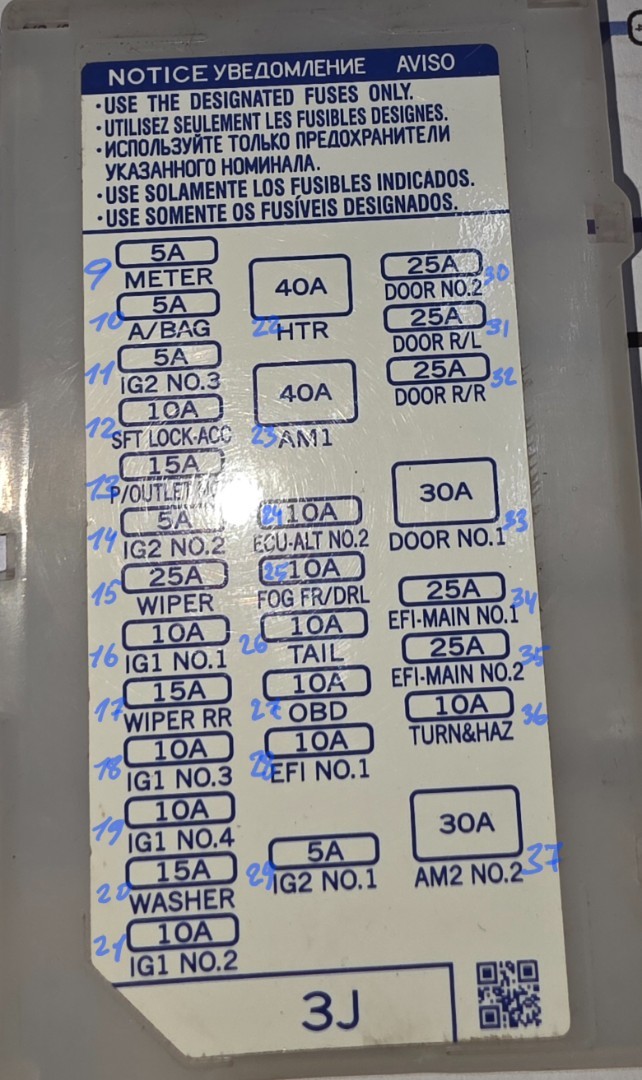 NOTICE УВЕДОМЛЕНИЕ AVISO
·USE THE DESIGNATED FUSES ONLY.
·UTILISEZ SEULEMENT LES FUSIBLES DESIGNES.
·ИСПОЛЬЗУЙТЕ ТОЛЬКО ПРЕДОХРАНИТЕЛИ
УКАЗАННОГО НОМИНАЛА.
·USE SOLAMENTE LOS FUSIBLES INDICADOS.
·USE SOMENTE OS FUSÍVEIS DESIGNADOS.
5A
9 METER
5A
10 A/BAG
5A
11 IG2 NO.3
10A
12 SFT LOCK-ACC
15A
13 P/OUTLET
5A
14 IG2 NO.2
25A
15 WIPER
10A
16 IG1 NO.1
15A
17 WIPER RR
10A
18 IG1 NO.3
10A
19 IG1 NO.4
15A
20 WASHER
10A
21 IG1 NO.2
40A
22 HTR
40A
23 AM1
24 10A
ECU-ALT NO.2
25 10A
FOG FR/DRL
10A
26 TAIL
10A
27 OBD
10A
28 EFI NO.1
5A
29 IG2 NO.1
25A 30
DOOR NO.2
25A 31
DOOR R/L
25A 32
DOOR R/R
30A
DOOR NO.1 33
25A 34
EFI-MAIN NO.1
25A 35
EFI-MAIN NO.2
10A 36
TURN&HAZ
30A
AM2 NO.2 37
3J